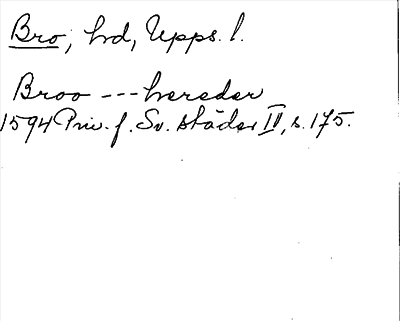 Bro, hd, Upps. l.
Broo --- hereder
1594 Priv. f. Sv. städer II, s. 175.